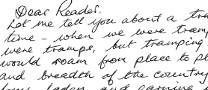 Dear Reader.
Let me tell you about a
time - when we were
were tramps, but tramping
would roam from place to
and breadth of the country
laden and earning